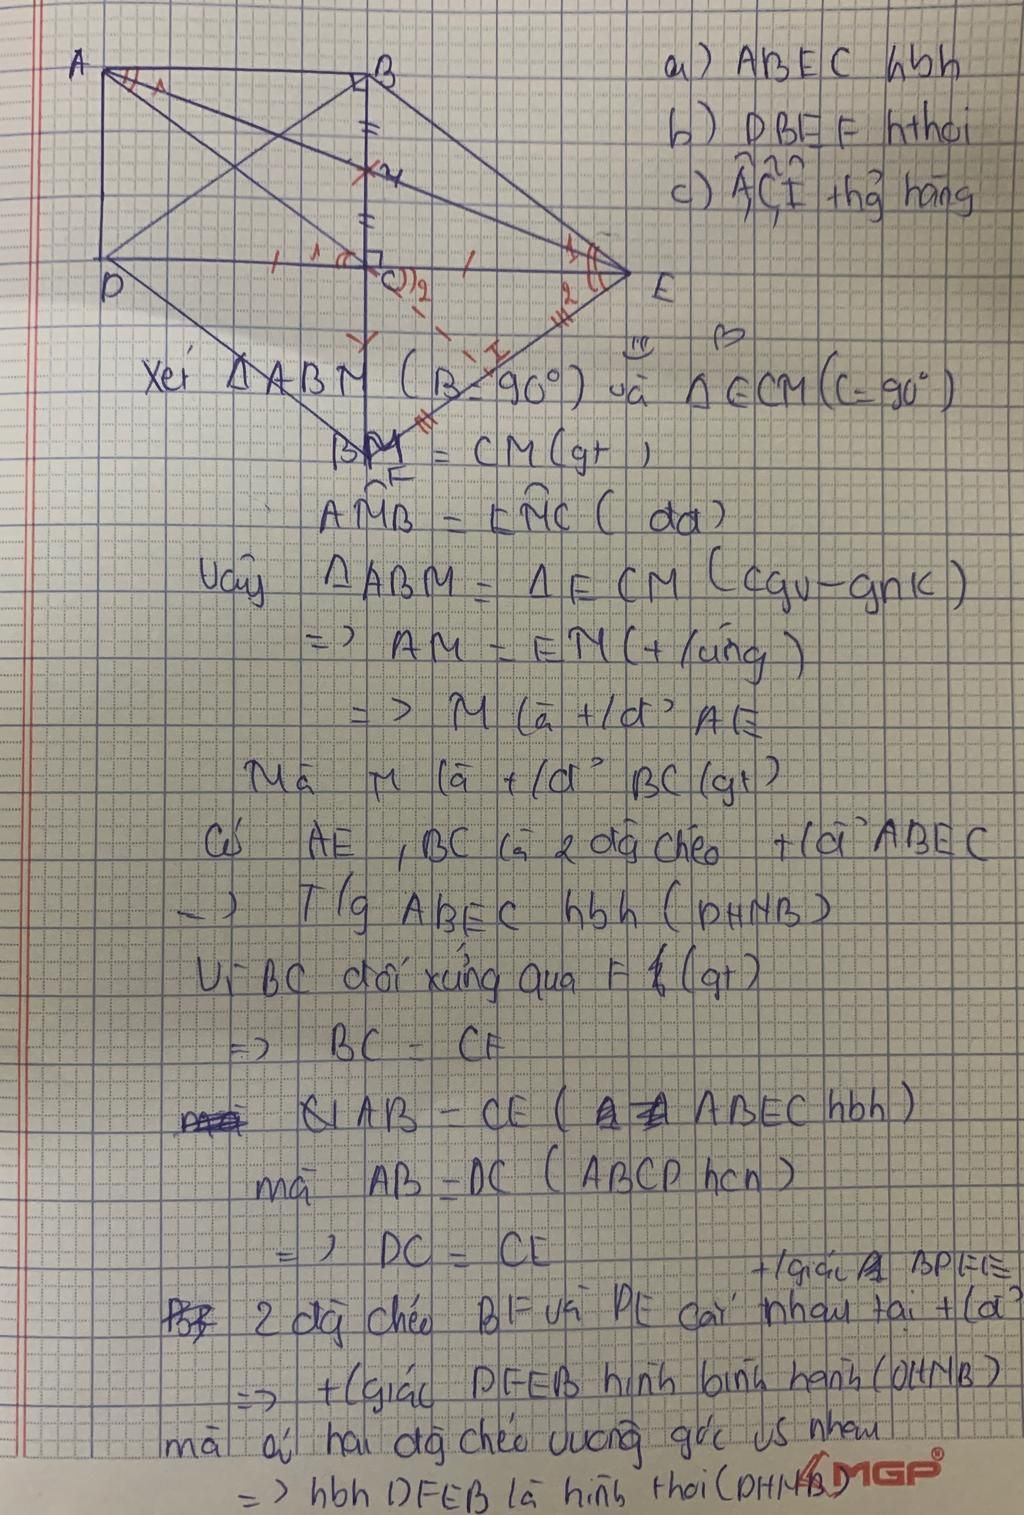 A
B
a) ABEC hbh
b) DBEF hthoi
c) A, C, I thg hàng
M
D
C
E
I
F
Xét ΔABM (B = 90°) và ΔECM (C = 90°)
BM = CM (gt)
AMB = EMC (đđ)
Vậy ΔABM = ΔECM (cgv - gnk)
=> AM = EM (t/ứng)
=> M là t/đ' AE
Mà M là t/đ' BC (gt)
Có AE, BC là 2 đg chéo t/đ' ABEC
=> T/g ABEC hbh (DHNB)
Vì BC đối xứng qua F (gt)
=> BC = CF
Vì AB = CE (ABEC hbh)
mà AB = DC (ABCD hcn)
=> DC = CE
t/giác BDFE
2 đg chéo BF và DE cắt nhau tại t/đ'
=> t/giác DFEB hình bình hành (DHNB)
mà có hai đg chéo vuông góc vs nhau
=> hbh DFEB là hình thoi (DHNB)
MGP